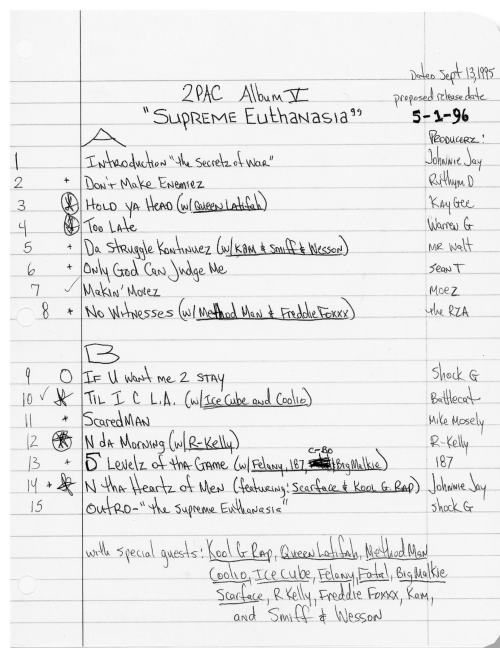 Dated Sept 13, 1995
2PAC Album V proposed release date
"Supreme Euthanasia" 5-1-96
A Producerz:
1 Introduction "the Secretz of War" Johnnie Jay
2 + Don't Make Enemiez Rhythum D
3 Hold ya Head (w/ Queen Latifah) Kay Gee
4 Too Late Warren G
5 + Da Struggle Kontinuez (w/ Kam & Smiff & Wesson) Mr Walt
6 + Only God Can Judge Me Sean T
7 ✓ Makin' Movez Moez
8 + No Witnesses (w/ Method Man & Freddie Foxxx) the RZA
B
9 O If U want me 2 stay Shock G
10 ✓ Til I C L.A. (w/ Ice Cube and Coolio) Battlecat
11 + ScaredMan Mike Mosely
12 N da Morning (w/ R-Kelly) R-Kelly
13 + 5 Levelz of tha Game (w/ Felany, 187, C-Bo Big Malkie) 187
14 + N tha Heartz of Men (featuring: Scarface & Kool G Rap) Johnnie Jay
15 Outro - "the Supreme Euthanasia" Shock G
with special guests: Kool G Rap, Queen Latifah, Method Man
Coolio, Ice Cube, Felany, Fatal, Big Malkie
Scarface, R Kelly, Freddie Foxxx, Kam,
and Smiff & Wesson